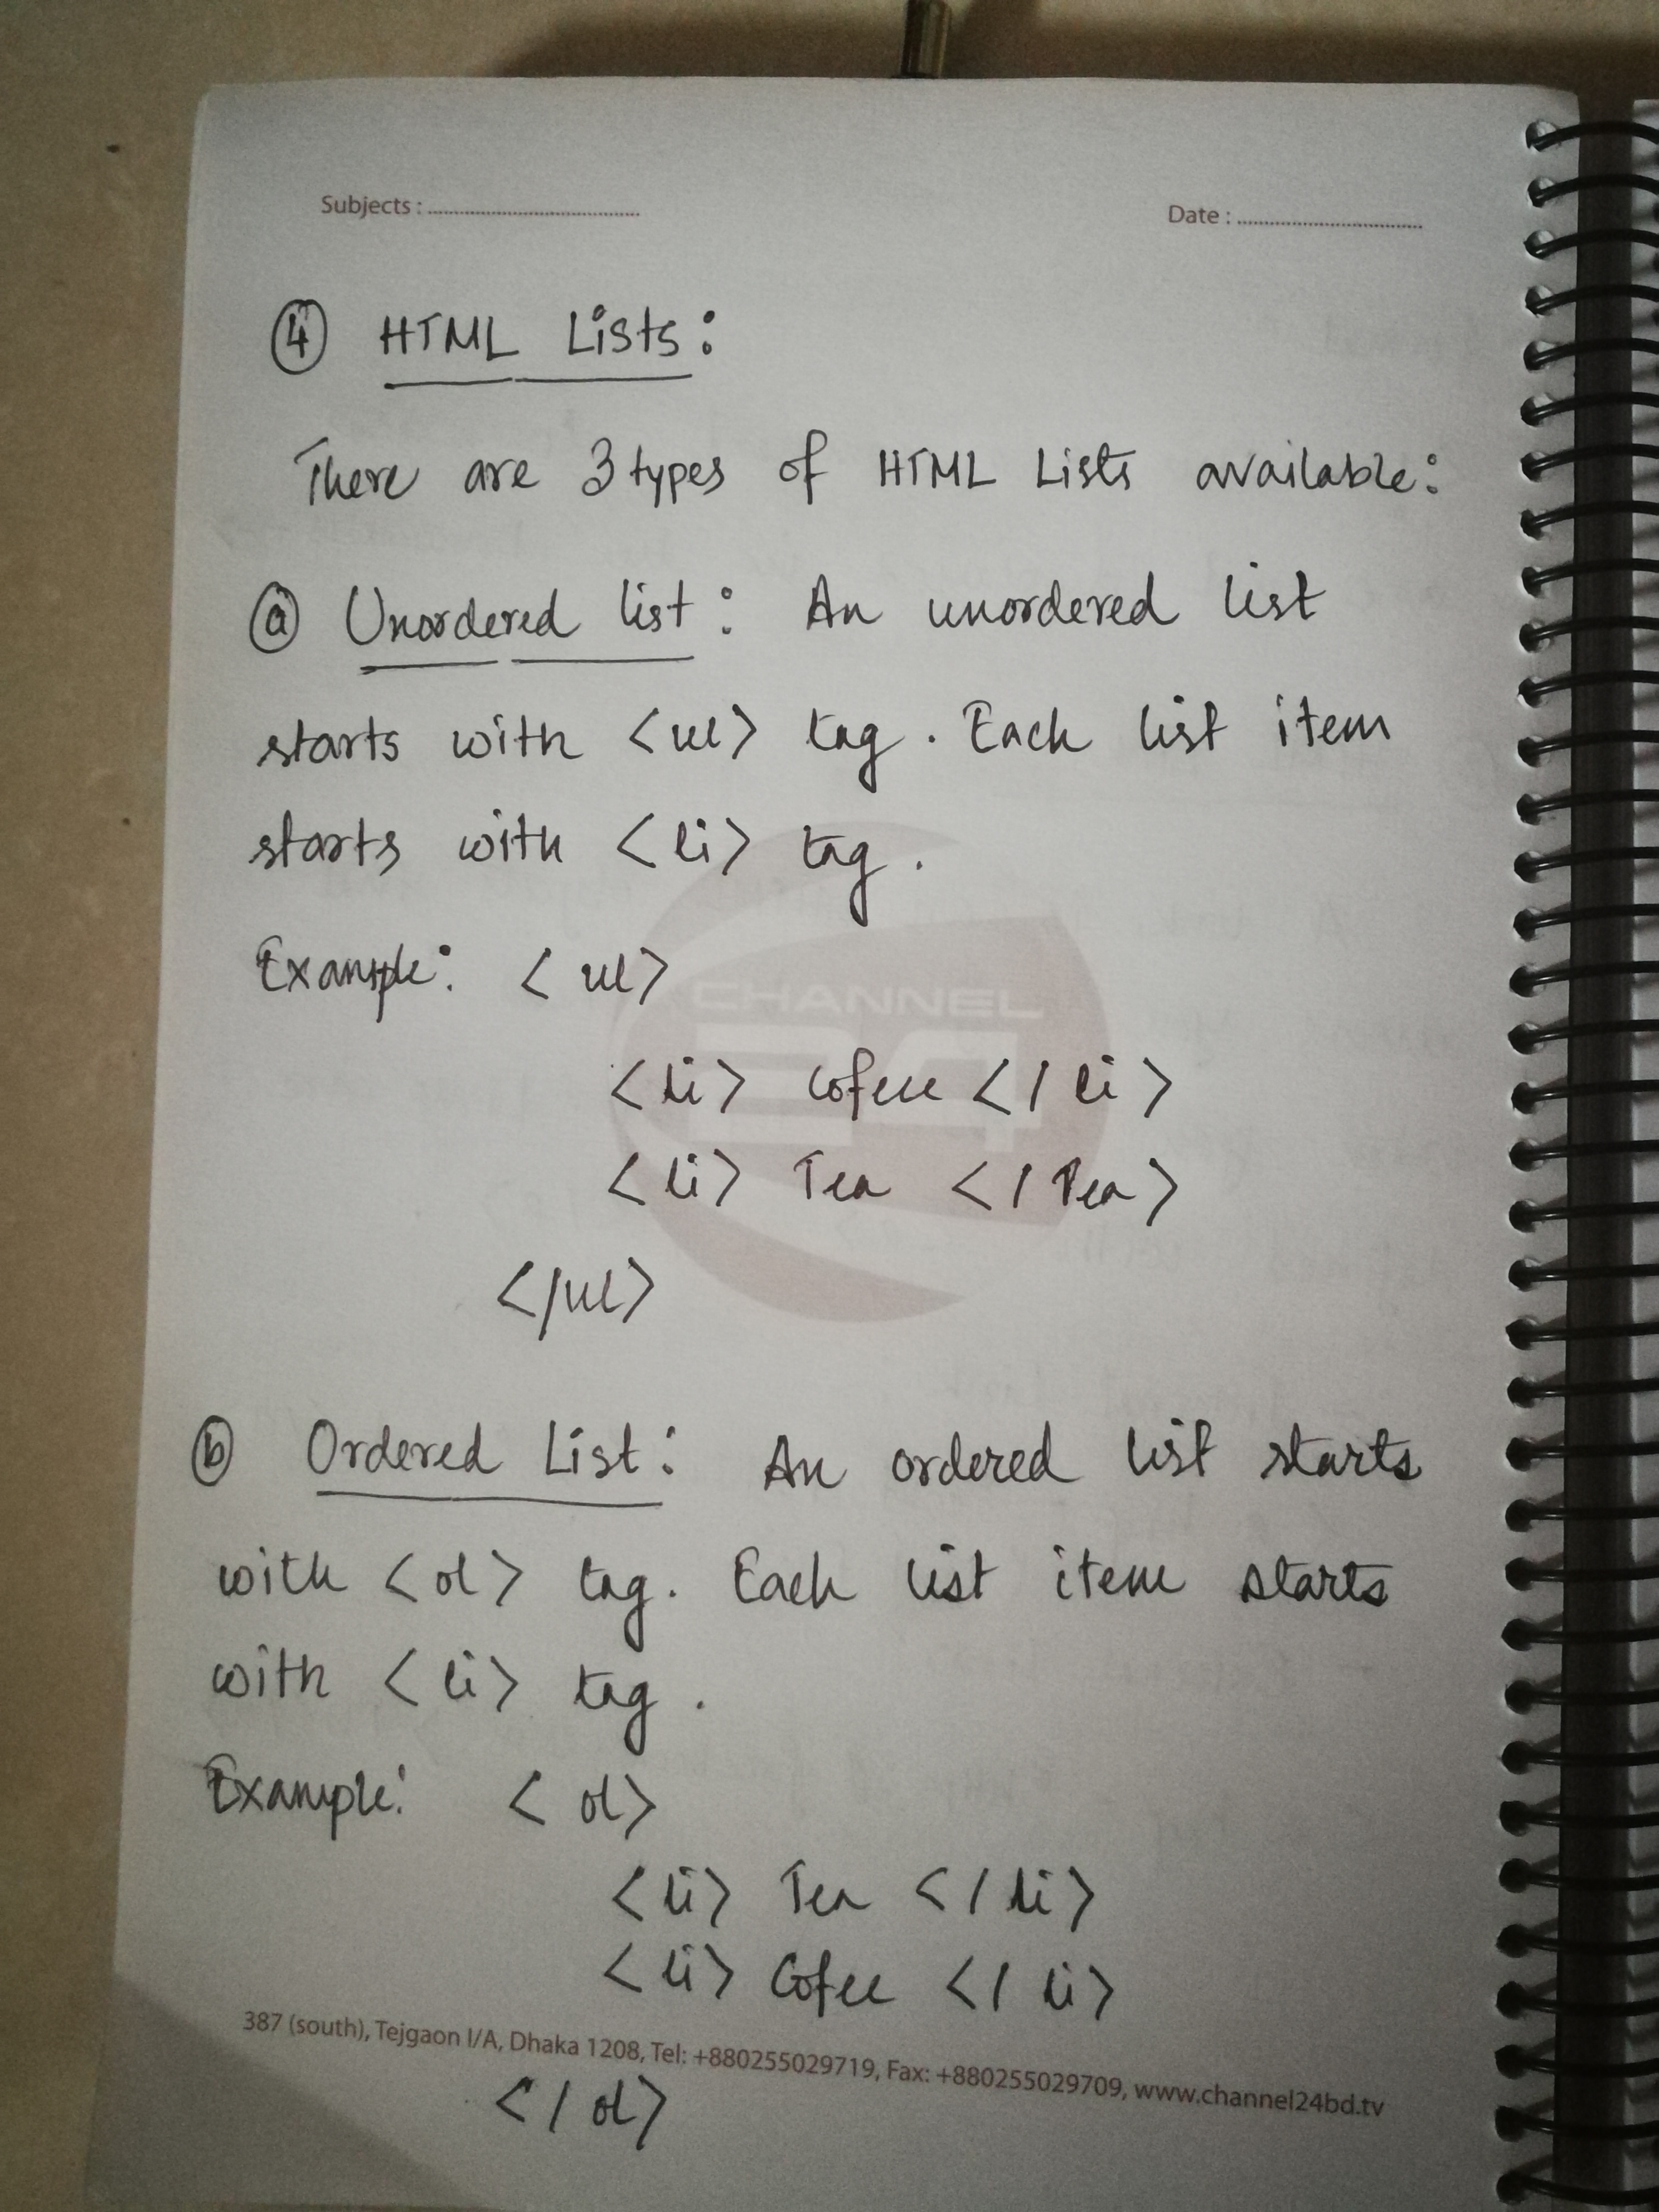 Subjects : ........................................
Date : ........................................
④ HTML Lists:
There are 3 types of HTML Lists available:
ⓐ Unordered list: An unordered list
starts with <ul> tag. Each list item
starts with <li> tag.
Example: <ul>
CHANNEL
24
<li> Cofeee </li>
<li> Tea </Tea>
</ul>
ⓑ Ordered List: An ordered list starts
with <ol> tag. Each list item starts
with <li> tag.
Example: <ol>
<li> Tea </li>
<li> Cofee </li>
387 (south), Tejgaon I/A, Dhaka 1208, Tel: +880255029719, Fax: +880255029709, www.channel24bd.tv
</ol>